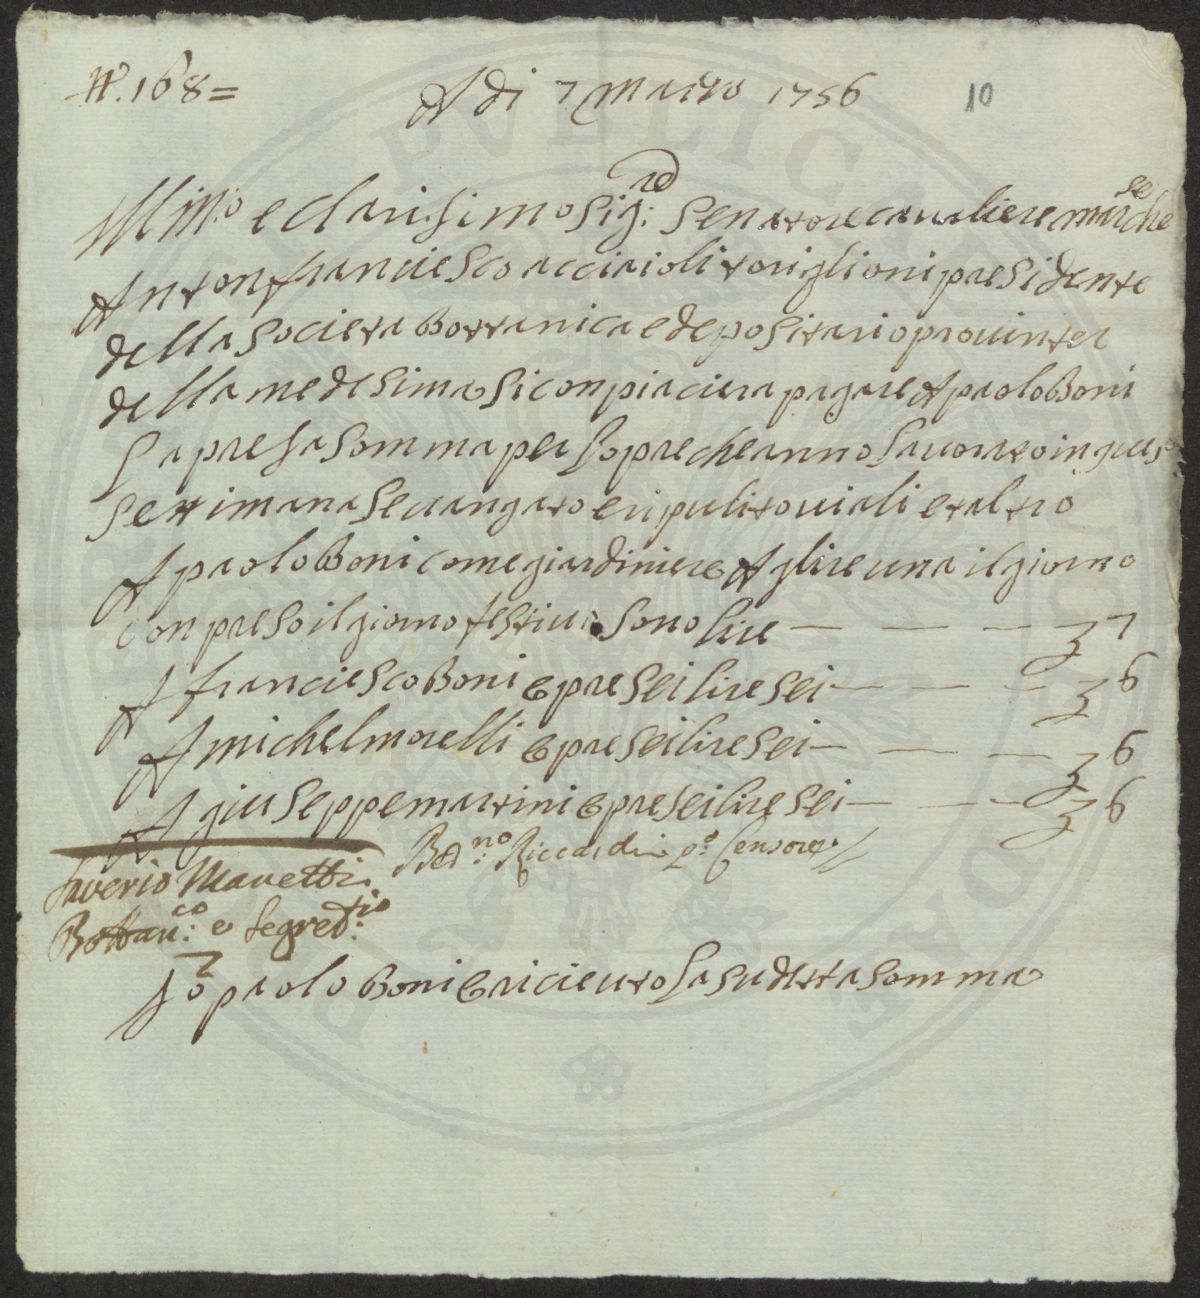 N.° 168 =
A di 7 Marzo 1756
10
Ill.mo e clarisimo Sig:re Senatore cavaliere marchese
Antonfranciesco acciaioli toriglioni presidente
della Societa Bottanica e depositario pro interi
della medesima si conpiaciera pagare A paolo Boni
la presa somma per lopre che anno lavorato in que
settimana se vangato e ripulito viali e altro
A paolo Boni come giardiniere A lire una il giorno
conpreso il giorno festivo sono lire — — — 7
A franciesco Boni e pre sei lire sei — — — 6
A michel morelli e pre sei lire sei — — — 6
A giuseppe martini e pre sei lire sei — — — 6
Ber:no Riccardi p.o Censore
Saverio Manetti
Bottan:co e Segret:rio
Io paolo Boni e riceuto la sudetta somma